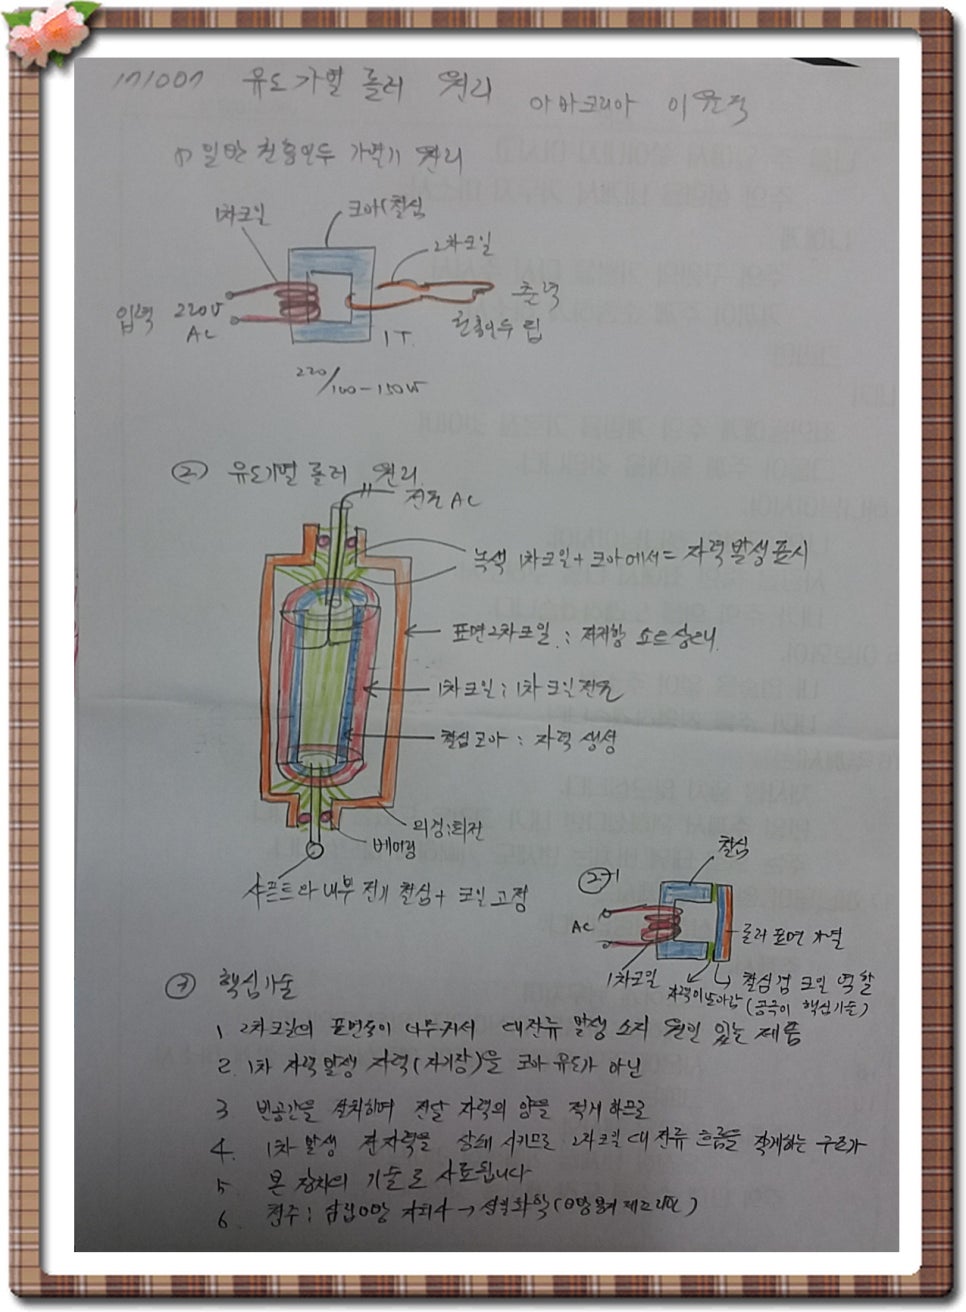 171007 유도가열 롤러 원리
아바코리아 이윤적
1) 일반 권총인두 가열기 원리
1차코일
코아(철심
2차코일
입력 220V
AC
출력
권총인두 팁
1T.
220/100-150W
② 유도가열 롤러 원리
전원 AC
녹색 1차코일+코아에서= 자력발생표시
표면 2차코일 : 저저항 쇼트상태
1차코일 : 1차코일 전원
철심코아 : 자력 생성
외경:회전
베어링
샤프트와 내부 전기 철심+ 코일 고정
②-1
철심
AC
롤러 표면 가열
1차코일
자력이 날아감
철심겸 코일 역할
(공극이 핵심기술)
③ 핵심기술
1. 2차코일의 표면적이 너무커서 대전류 발생 소지 원인 있는 제품
2. 1차 자력발생 자력(자기장)을 코아 유도가 아닌
3 빈공간을 설치하여 전달 자력의 양을 적게 하므로
4. 1차발생 전자력을 상쇄 시키므로 2차코일 대전류 흐름을 작게하는 구조가
5 본 장치의 기술로 사료됩니다
6.